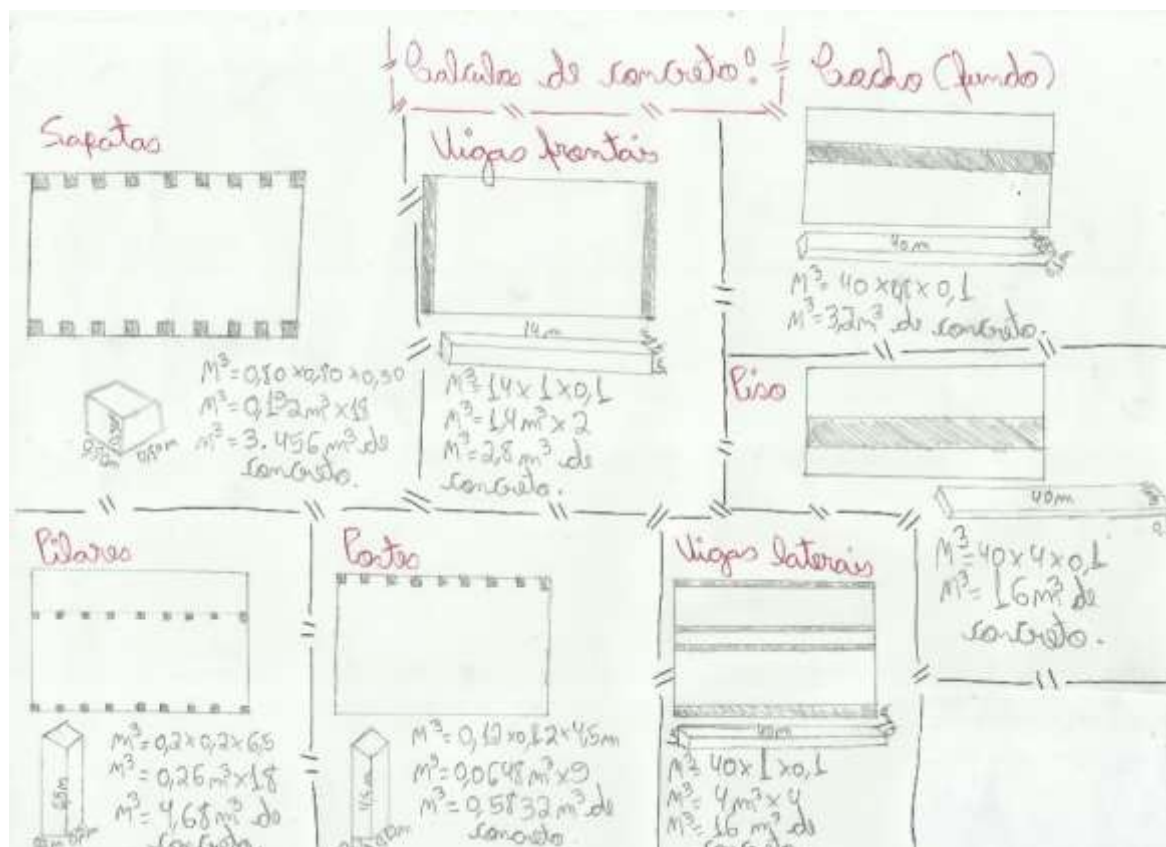 Calculos de concreto!
Sapatas
M³= 0,80 x 0,80 x 0,30
M³= 0,192m³ x 18
M³= 3.456 m³ de
concreto.
Vigas frontais
14m
M³= 14 x 1 x 0,1
M³= 1,4m³ x 2
M³= 2,8 m³ de
concreto.
Cocho (fundo)
40m
M³= 40 x 0,8 x 0,1
M³= 3,2m³ de concreto.
Piso
40m
M³= 40 x 4 x 0,1
M³= 16m³ de
concreto.
Pilares
6,5m
M³= 0,2 x 0,2 x 6,5
M³= 0,26m³ x 18
M³= 4,68m³ de
concreto.
Postes
4,5m
M³= 0,12 x 0,12 x 4,5m
M³= 0,0648m³ x 9
M³= 0,5832m³ de
concreto.
Vigas laterais
40m
M³= 40 x 1 x 0,1
M³= 4m³ x 4
M³= 16 m³ de
concreto.